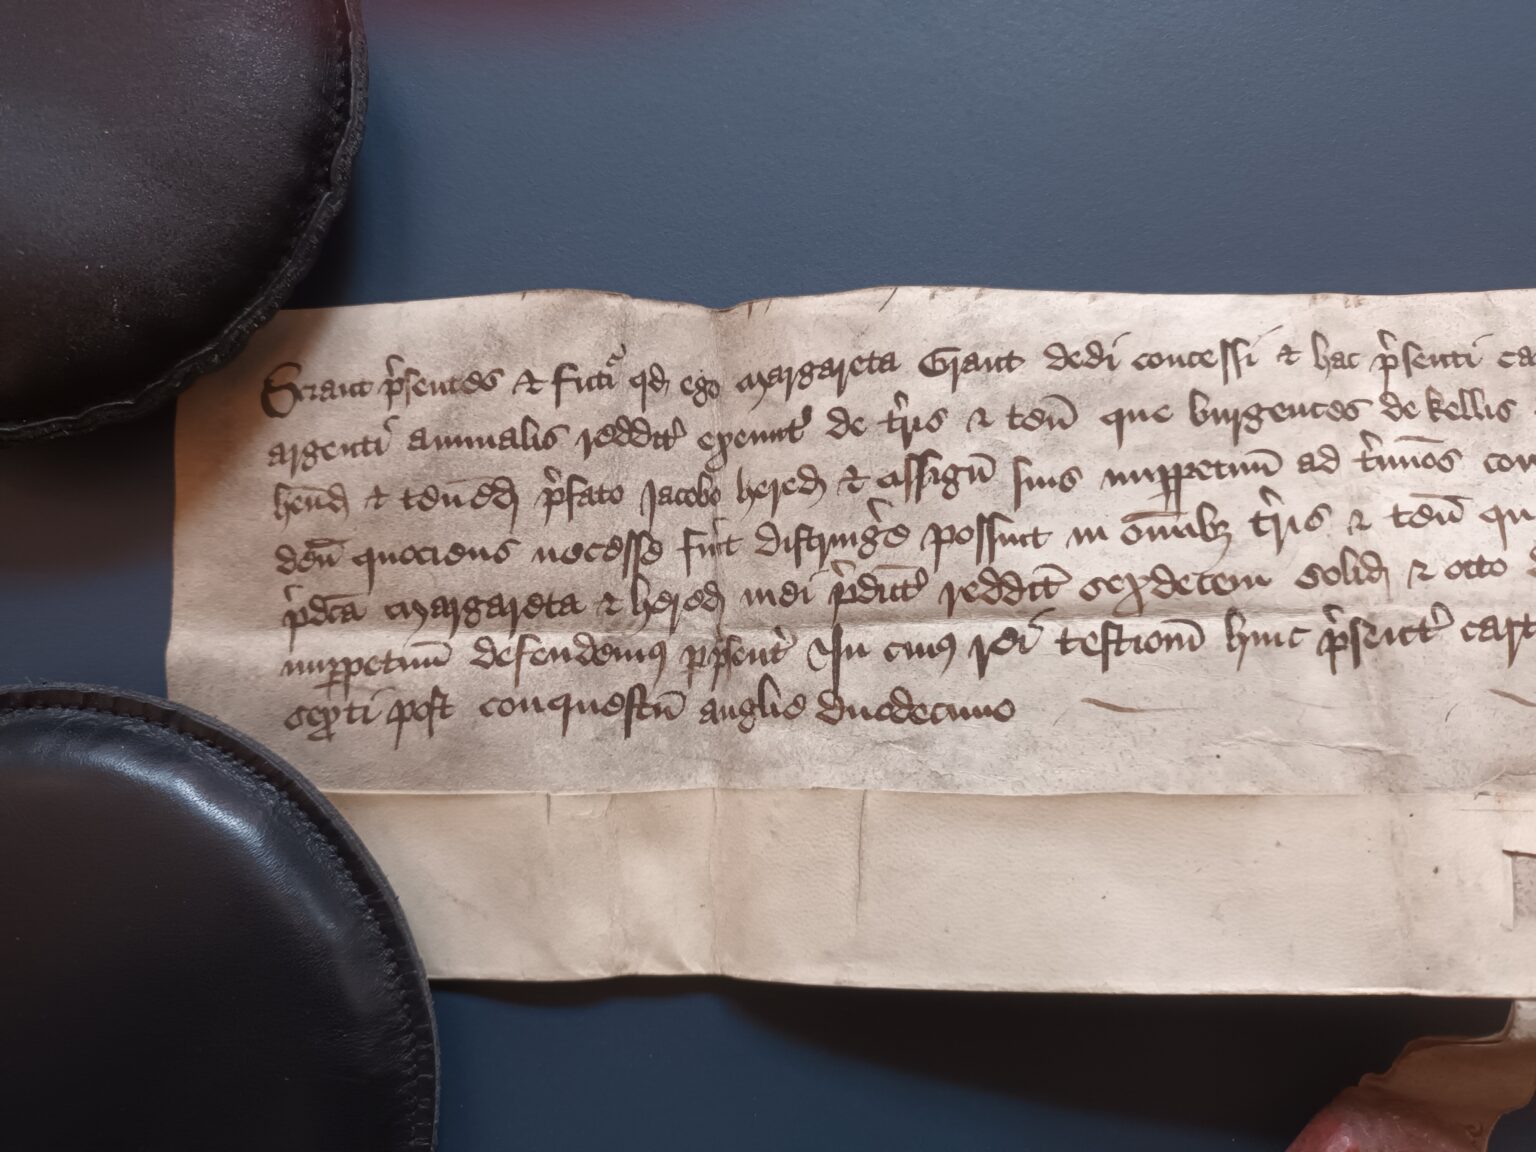 Sciant p'sentes & futi qd ego Margareta Grant dedi concessi & hac p'senti ca
argenti annualis reddit' exeunt' de t'ris & ten̄ que burgences de kellis
hend̄ & tenend̄ p'fato Jacobo hered̄ & assign̄ suis imppetuū ad t'mīos con
den̄ quociens necesse fu'it distring'e possint in om̄ibȝ t'ris & ten̄ qu
p'dc̄a Margareta & hered̄ mei p'dict' reddit̄ sexdecem solid̄ & octo
imppetuū defendemus p p'sent' In cuius rei testimoīu huic p'sent' cart
sexti post conquestū anglie duodecimo